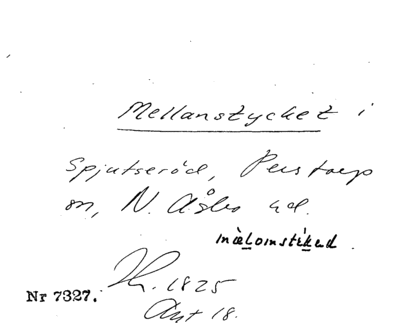 Mellanstycket i
Spjutseröd, Perstorp
sn, N. Åsbo hd.
mæ̀lomstiked.
Nr 7327. Kr. 1825
Akt 18.